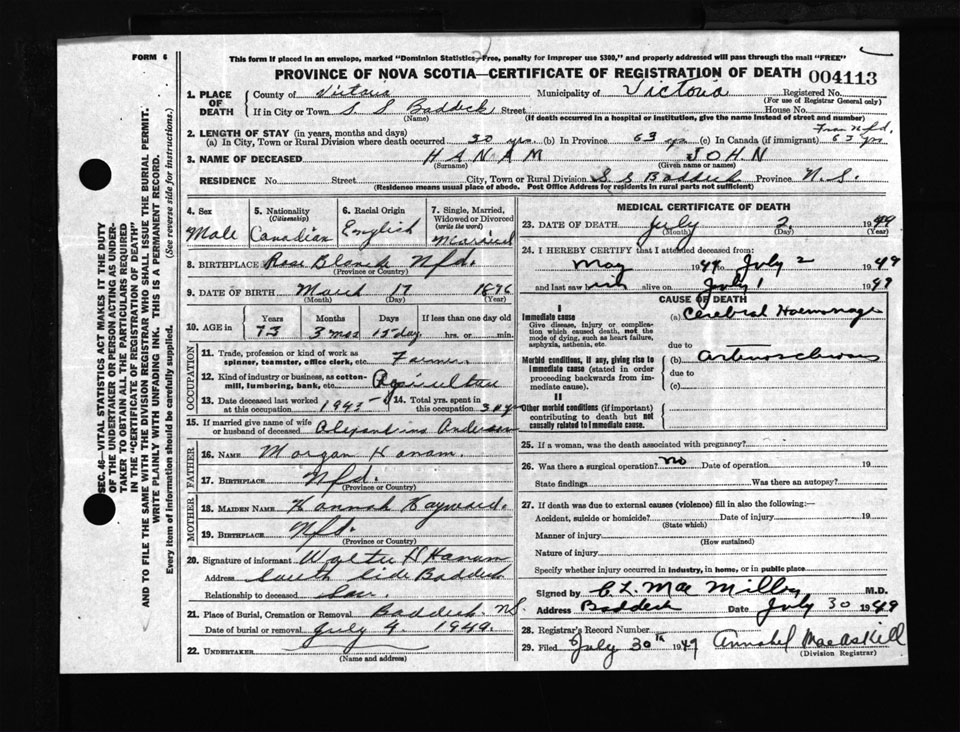 FORM 6
This form if placed in an envelope, marked "Dominion Statistics-Free, penalty for improper use $300," and properly addressed will pass through the mail "FREE"
PROVINCE OF NOVA SCOTIA—CERTIFICATE OF REGISTRATION OF DEATH 004113
1. PLACE OF DEATH County of Victoria Municipality of Victoria Registered No.
(For use of Registrar General only)
If in City or Town S. S. Baddeck Street House No.
(Name) (If death occurred in a hospital or institution, give the name instead of street and number)
2. LENGTH OF STAY (in years, months and days) From Nfd.
(a) In City, Town or Rural Division where death occurred 30 yrs. (b) In Province 63 yrs (c) In Canada (if immigrant) 63 yrs
3. NAME OF DECEASED HANAM JOHN
(Surname) (Given name or names)
RESIDENCE No. Street City, Town or Rural Division S. S Baddeck Province N.S.
(Residence means usual place of abode. Post Office Address for residents in rural parts not sufficient)
4. Sex Male
5. Nationality (Citizenship) Canadian
6. Racial Origin English
7. Single, Married, Widowed or Divorced (write the word) Married
8. BIRTHPLACE Rose Blanch Nfd.
(Province or Country)
9. DATE OF BIRTH March 17 1876
(Month) (Day)
10. AGE in Years Months Days If less than one day old
73 3 mos 15 day hrs. or min.
OCCUPATION
11. Trade, profession or kind of work as spinner, teamster, office clerk, etc. Farmer
12. Kind of industry or business, as cotton-mill, lumbering, bank, etc. Agriculture
13. Date deceased last worked at this occupation 1945
14. Total yrs. spent in this occupation 30 yrs
15. If married give name of wife or husband of deceased Anderson
FATHER
16. NAME Morgan Hanam.
17. BIRTHPLACE Nfd.
(Province or Country)
MOTHER
18. MAIDEN NAME Hannah Hayward.
19. BIRTHPLACE Nfd.
(Province or Country)
20. Signature of informant Walter H Hanam
Address South Side Baddeck
Relationship to deceased Son.
21. Place of Burial, Cremation or Removal Baddeck. N.S.
Date of burial or removal July 4. 1949.
22. UNDERTAKER
(Name and address)
MEDICAL CERTIFICATE OF DEATH
23. DATE OF DEATH July 2 1949
(Month) (Day) (Year)
24. I HEREBY CERTIFY that I attended deceased from:
May 1949 to July 2 1949
and last saw him alive on July 1 1949
CAUSE OF DEATH
I
Immediate cause (a) Cerebral Haemorrhage
Give disease, injury or complication which caused death, not the mode of dying, such as heart failure, asphyxia, asthenia, etc.
due to
Morbid conditions, if any, giving rise to immediate cause (stated in order proceeding backwards from immediate cause). (b) Arteriosclerosis
due to
(c)
II
Other morbid conditions (if important) contributing to death but not causally related to immediate cause.
25. If a woman, was the death associated with pregnancy?
26. Was there a surgical operation? no Date of operation 19
State findings Was there an autopsy?
27. If death was due to external causes (violence) fill in also the following:
Accident, suicide or homicide? Date of injury 19
(State which)
Manner of injury
(How sustained)
Nature of injury
Specify whether injury occurred in industry, in home, or in public place
Signed by C. L. MacMillan M.D.
Address Baddeck Date July 30 1949
28. Registrar's Record Number
29. Filed July 30th 1949 Annabel MacAskill
(Division Registrar)
SEC. 46—VITAL STATISTICS ACT MAKES IT THE DUTY
OF THE UNDERTAKER OR PERSON ACTING AS UNDER-
TAKER TO OBTAIN ALL THE PARTICULARS REQUIRED
IN THE "CERTIFICATE OF REGISTRATION OF DEATH"
AND TO FILE THE SAME WITH THE DIVISION REGISTRAR WHO SHALL ISSUE THE BURIAL PERMIT.
WRITE PLAINLY WITH UNFADING INK. THIS IS A PERMANENT RECORD.
Every item of information should be carefully supplied. (See reverse side for instructions.)